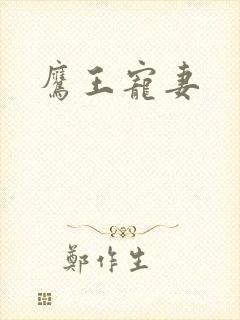 鷹王寵妻
鄭作生